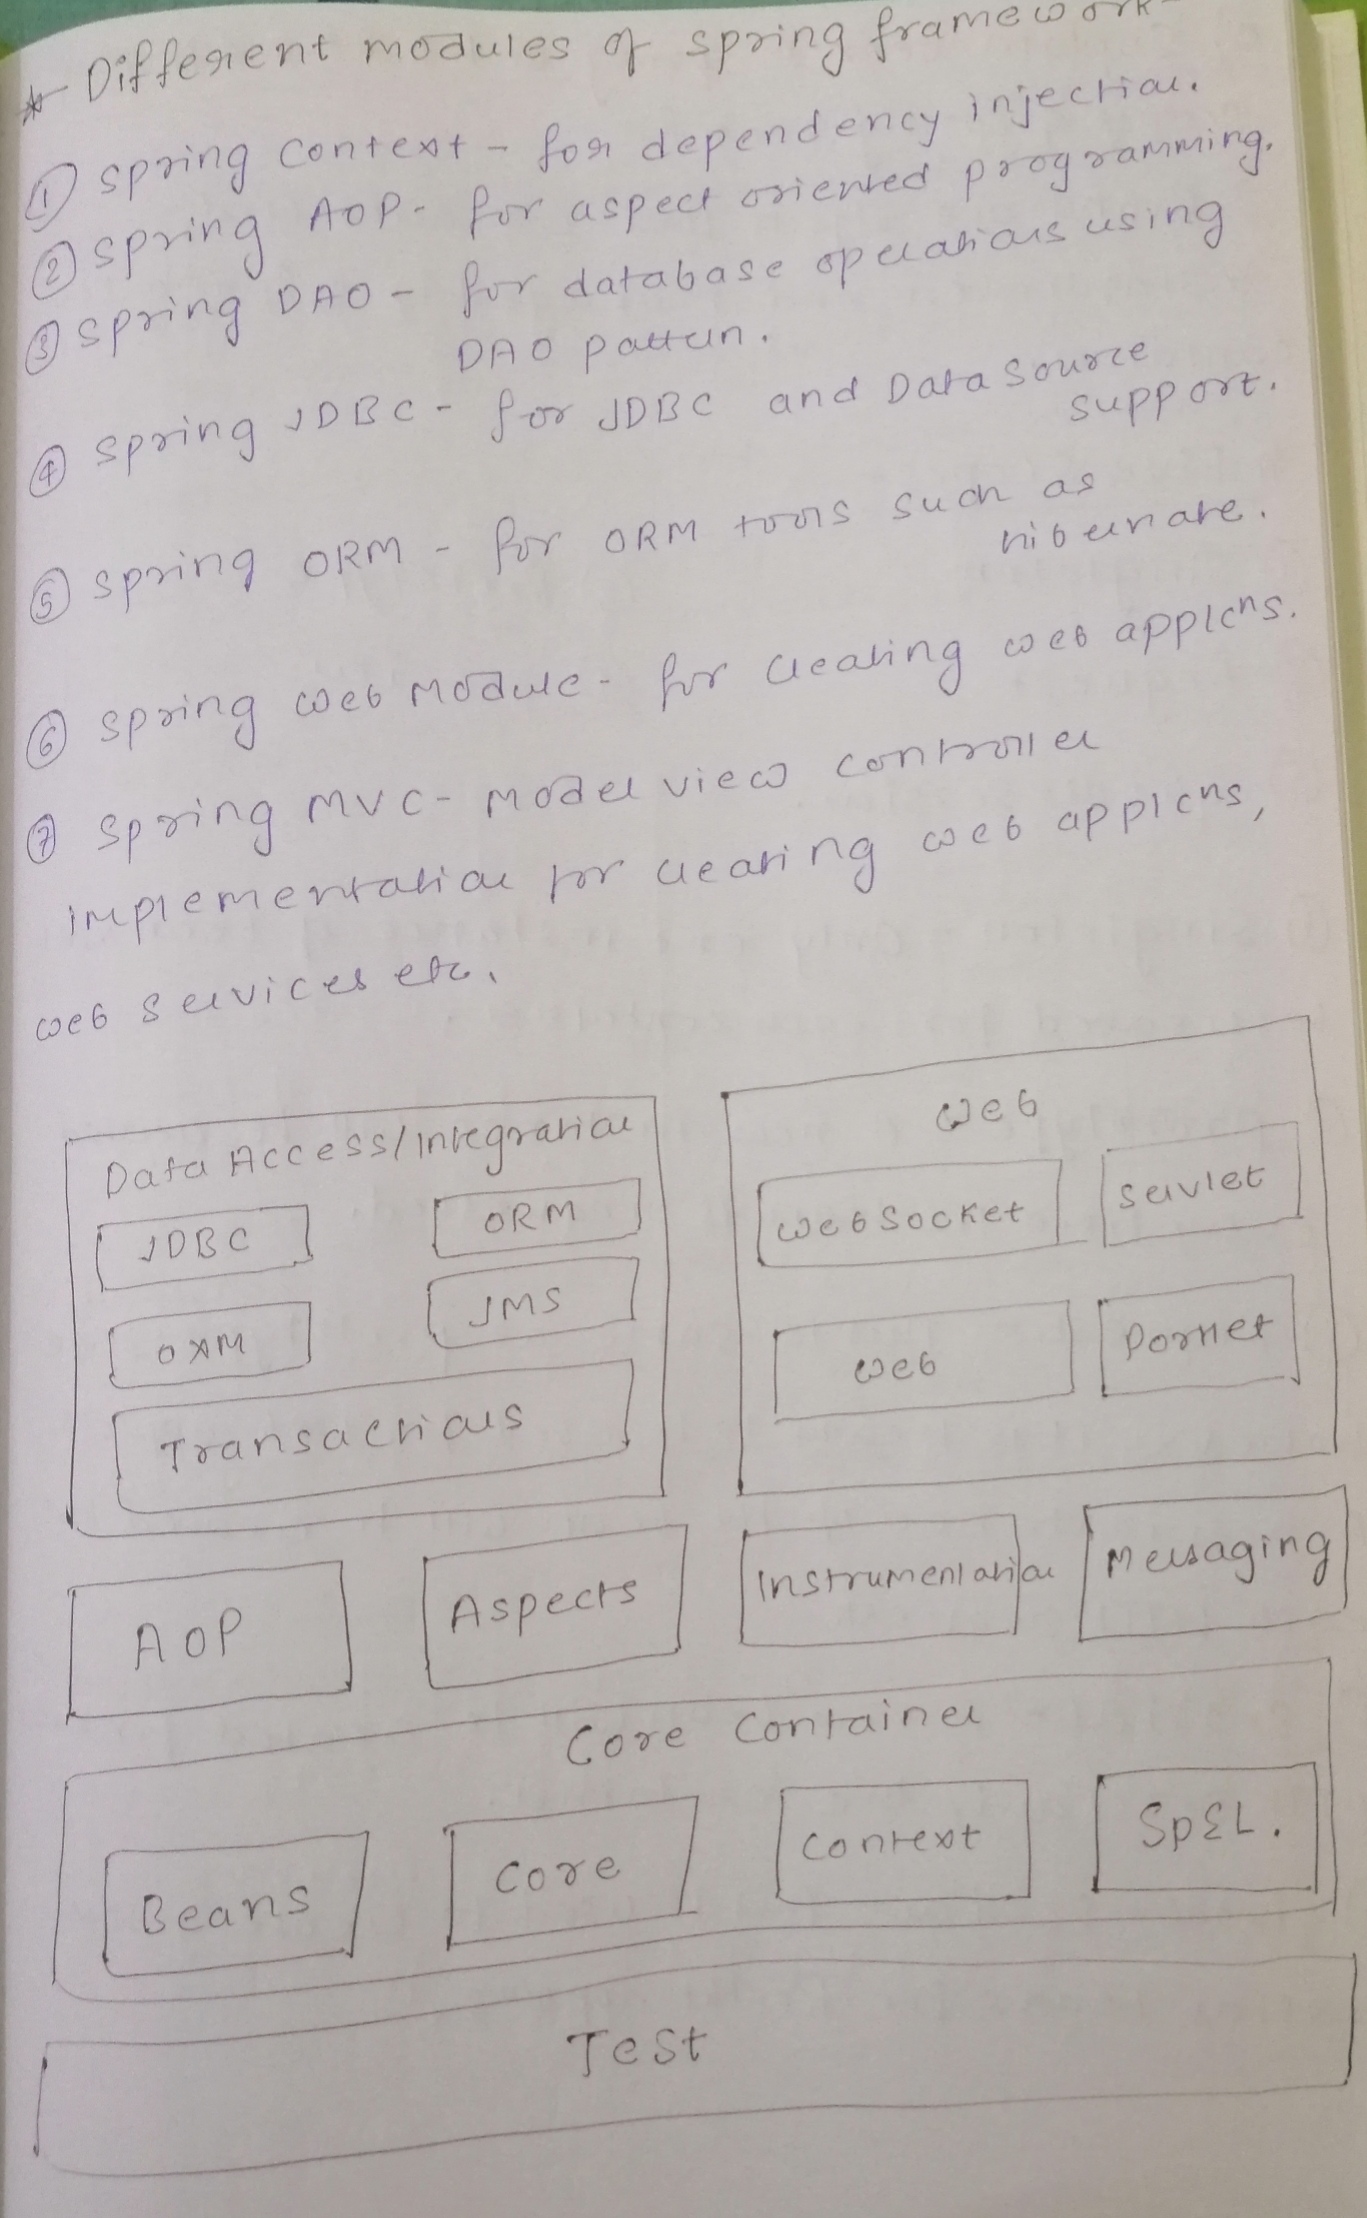 * Different modules of spring framework
① spring context - for dependency injection.
② spring AOP - for aspect oriented programming.
③ spring DAO - for database operations using
DAO pattern.
④ spring JDBC - for JDBC and DataSource
support.
⑤ spring ORM - for ORM tools such as
hibernate.
⑥ spring web module - for creating web applcns.
⑦ spring MVC - model view controller
implementation for creating web applcns,
web services etc.
Data Access/Integration
JDBC ORM
OXM JMS
Transactions
Web
WebSocket Servlet
Web Portlet
AOP Aspects Instrumentation Messaging
Core Container
Beans Core Context SpEL.
Test